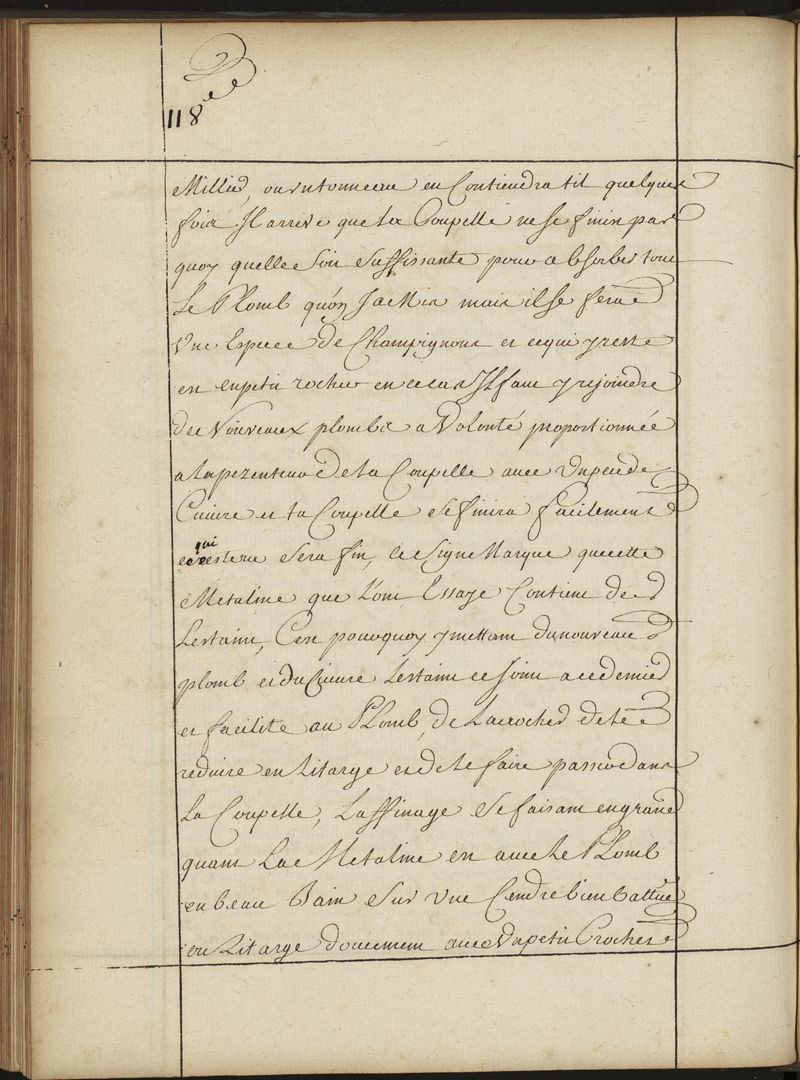 118e
Millier, ou un tonneau en Contiendra til quelques
fois Il arrive que la Coupelle ne se finir par
quoy quelle soit Suffissante pour absorber tout
Le Plomb qu'on Ja Mis mais il se fera
Vne Espece de Champignons et ce qui y reste
en un petit rocher en ce cas Il faut y rejoindre
de Nouveaux plombs a Volonté proportionnée
a la pezenteur de la Coupelle avec Un peu de
Cuivre et la Coupelle se finira facilement
ce qui restera sera fin, ce Signe Marque que cette
Metaline que l'on Essaye Contient de
Lestaim, C'en pourquoy y mettant du nouveau
plomb et du Cuivre Lestaim se joint a ce dernier
et facilite au Plomb, de Lacrocher de le
reduire en Litarge et de le faire passer dans
La Coupelle, Laffinage se faisant en grand
quant La Metaline en avec le Plomb
en beau Bain Sur Vne Cendre bien battue
on Litarge doucement avec Un petit Crochet